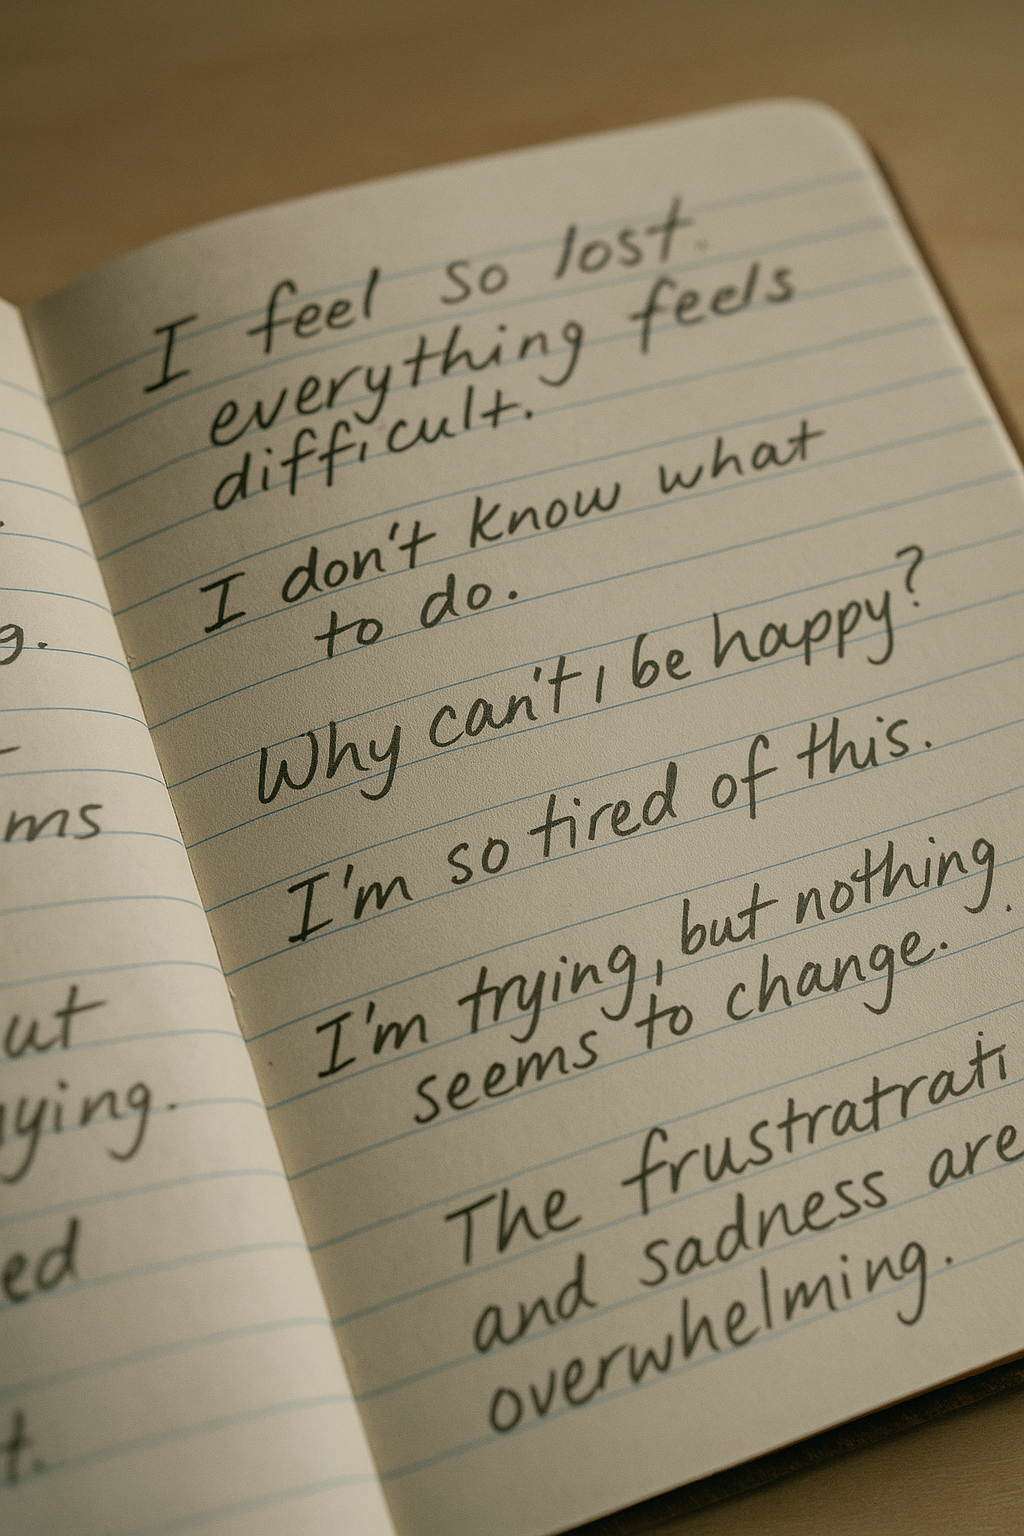 g.
ms
ut
ying.
ed
t.
I feel so lost.
everything feels
difficult.
I don't know what
to do.
Why can't I be happy?
I'm so tired of this.
I'm trying, but nothing
seems to change.
The frustratrati
and sadness are
overwhelming.